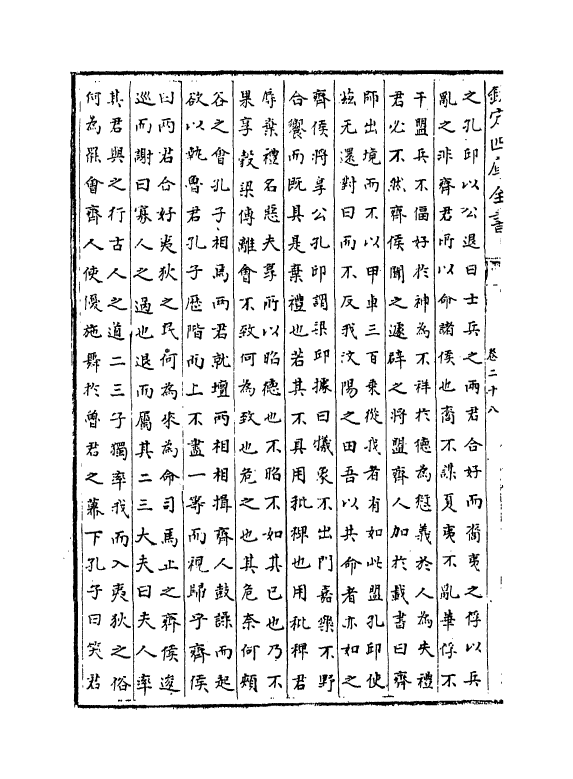 欽定四庫全書
卷二十八
之孔邱以公退曰士兵之兩君合好而裔夷之俘以兵
亂之非齊君所以命諸侯也裔不謀夏夷不亂華俘不
干盟兵不偪好於神為不祥於德為愆義於人為失禮
君必不然齊侯聞之遽辟之將盟齊人加於載書曰齊
師出境而不以甲車三百乘從我者有如此盟孔邱使
茲无還對曰而不反我汶陽之田吾以共命者亦如之
齊侯將享公孔邱謂梁邱據曰犧象不出門嘉樂不野
合饗而既具是棄禮也若其不具用秕稗也用秕稗君
辱棄禮名惡夫享所以昭德也不昭不如其已也乃不
果享穀梁傳離會不致何為致也危之也其危奈何頰
谷之會孔子相焉兩君就壇兩相相揖齊人鼓譟而起
欲以執魯君孔子歷階而上不盡一等而視歸乎齊侯
曰兩君合好夷狄之民何為來為命司馬止之齊侯逡
巡而謝曰寡人之過也退而屬其二三大夫曰夫人率
其君與之行古人之道二三子獨率我而入夷狄之俗
何為罷會齊人使優施舞於魯君之幕下孔子曰笑君